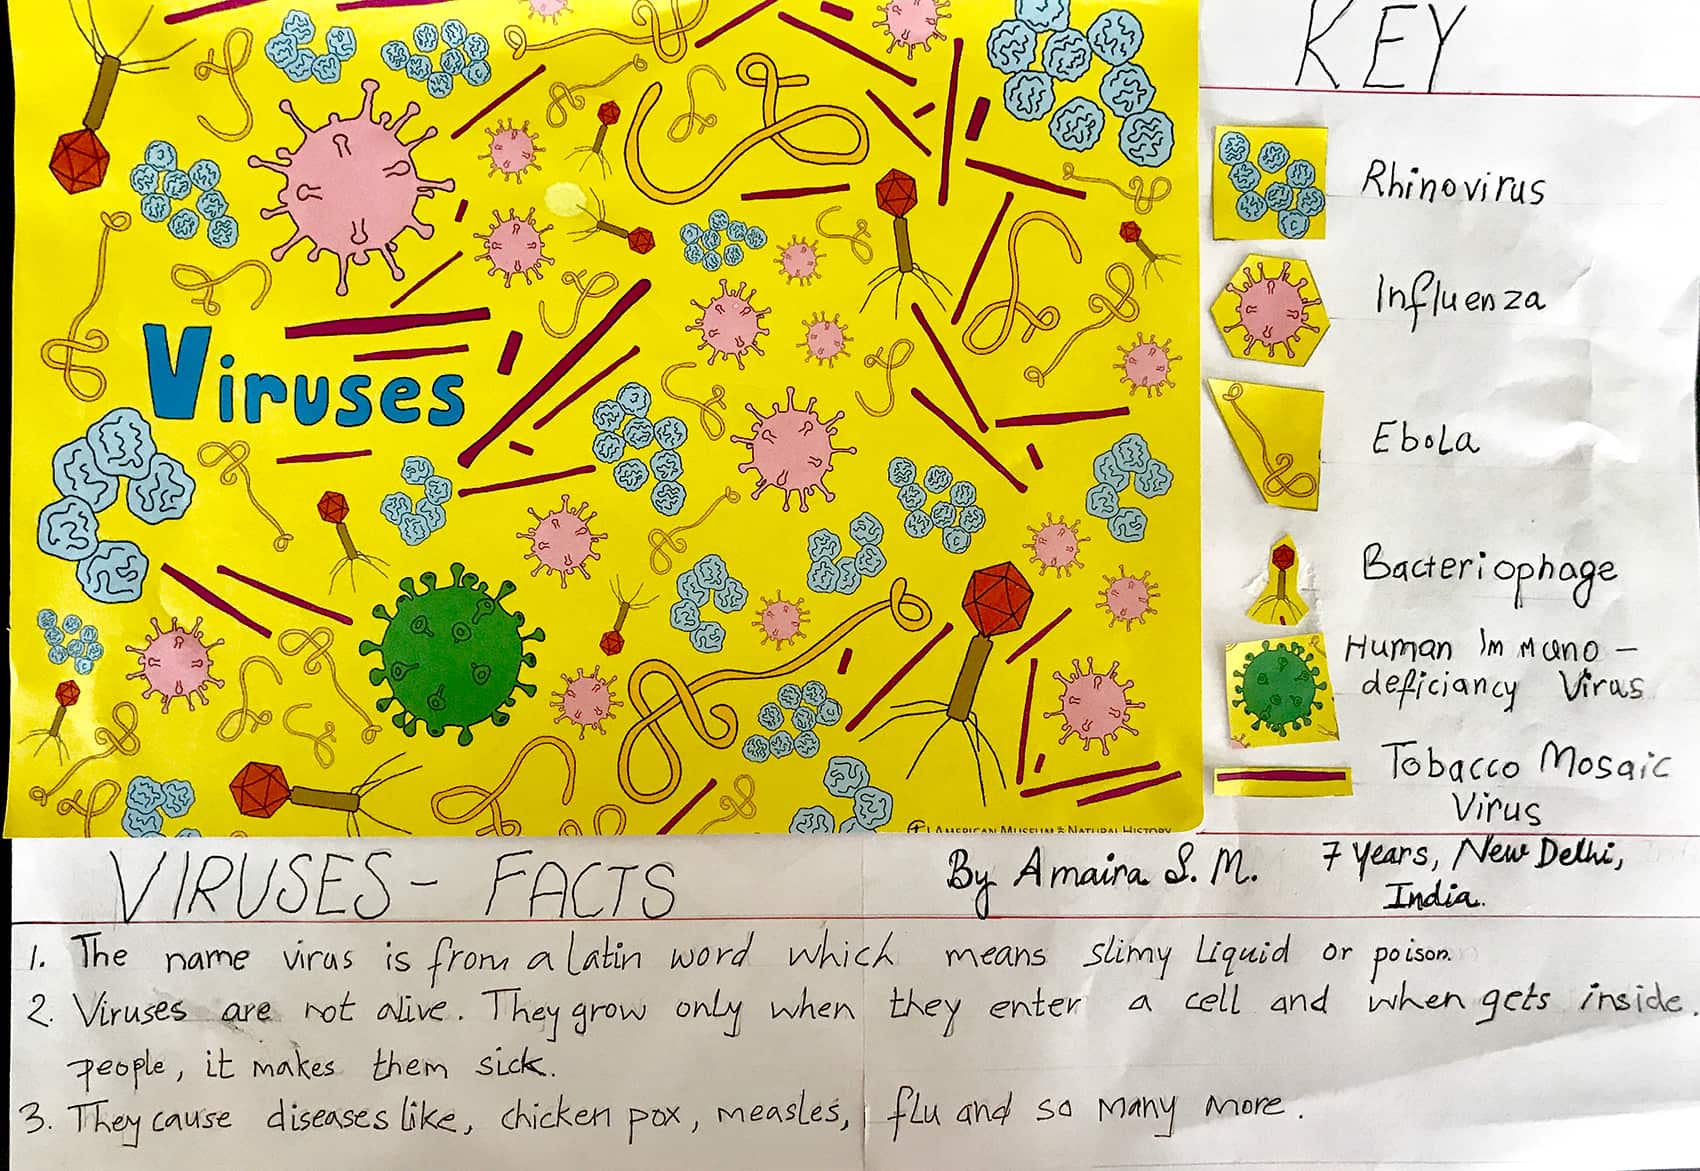 Viruses
AMERICAN MUSEUM & NATURAL HISTORY
KEY
Rhinovirus
Influenza
Ebola
Bacteriophage
Human Immuno-
deficiancy Virus
Tobacco Mosaic
Virus
VIRUSES- FACTS
By Amaira S. M.
7 years, New Delhi,
India.
1. The name virus is from a latin word which means slimy Liquid or poison.
2. Viruses are not alive. They grow only when they enter a cell and when gets inside.
people, it makes them sick.
3. They cause diseases like, chicken pox, measles, flu and so many more.